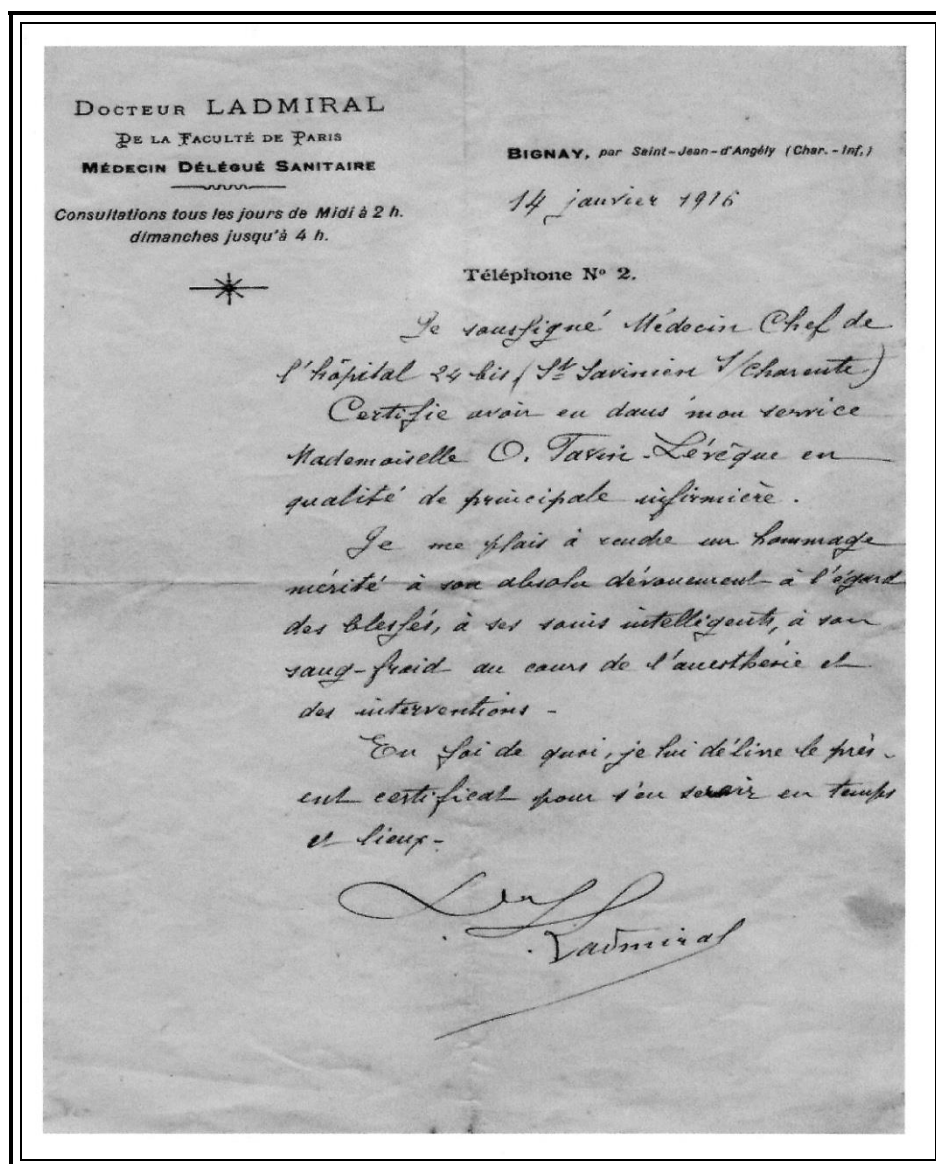 DOCTEUR LADMIRAL
DE LA FACULTÉ DE PARIS
MÉDECIN DÉLÉGUÉ SANITAIRE
Consultations tous les jours de Midi à 2 h.
dimanches jusqu'à 4 h.
BIGNAY, par Saint-Jean-d'Angély (Char.-Inf.)
14 janvier 1916
Téléphone No 2.
Je soussigné Médecin Chef de
l'hôpital 24 bis (St Savinien s/Charente)
Certifie avoir eu dans mon service
Mademoiselle O. Tavin-Lévêque en
qualité de principale infirmière.
Je me plais à rendre un hommage
mérité à son absolu dévouement à l'égard
des blessés, à ses soins intelligents, à son
sang-froid au cours de l'anesthésie et
des interventions -
En foi de quoi, je lui délivre le prés-
ent certificat pour s'en servir en temps
et lieux -
Ladmiral